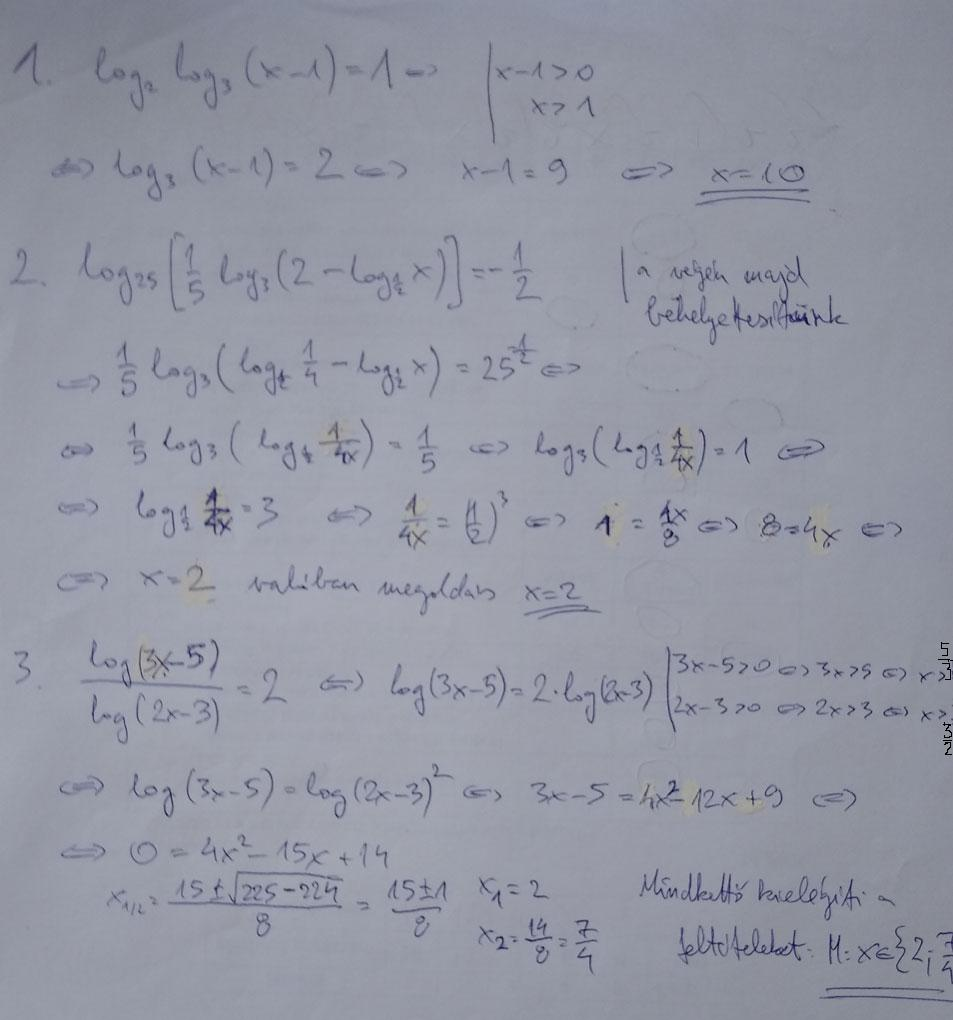 1. log₂ log₃ (x-1) = 1 ⇔ | x-1>0
x>1
⇔ log₃ (x-1) = 2 ⇔ x-1 = 9 ⇔ x=10
2. log₂₅ [1/5 log₃ (2 - log_{1/2} x)] = -1/2 | a végén majd
behelyettesítünk
⇔ 1/5 log₃ (log_{1/2} 1/4 - log_{1/2} x) = 25^{-1/2} ⇔
⇔ 1/5 log₃ (log_{1/2} 1/4x) = 1/5 ⇔ log₃ (log_{1/2} 1/4x) = 1 ⇔
⇔ log_{1/2} 1/4x = 3 ⇔ 1/4x = (1/2)³ ⇔ 1 = 4x/8 ⇔ 8=4x ⇔
⇔ x=2 valóban megoldás x=2
3. log(3x-5)/log(2x-3) = 2 ⇔ log(3x-5) = 2·log(2x-3) | 3x-5>0 ⇔ 3x>5 ⇔ x>5/3
2x-3>0 ⇔ 2x>3 ⇔ x>3/2
⇔ log(3x-5) = log(2x-3)² ⇔ 3x-5 = 4x²-12x+9 ⇔
⇔ 0 = 4x²-15x+14
x_{1/2} = (15±√(225-224))/8 = (15±1)/8 x₁=2
x₂=14/8=7/4
Mindkettő kielégíti a
feltételeket. M: x∈{2; 7/4